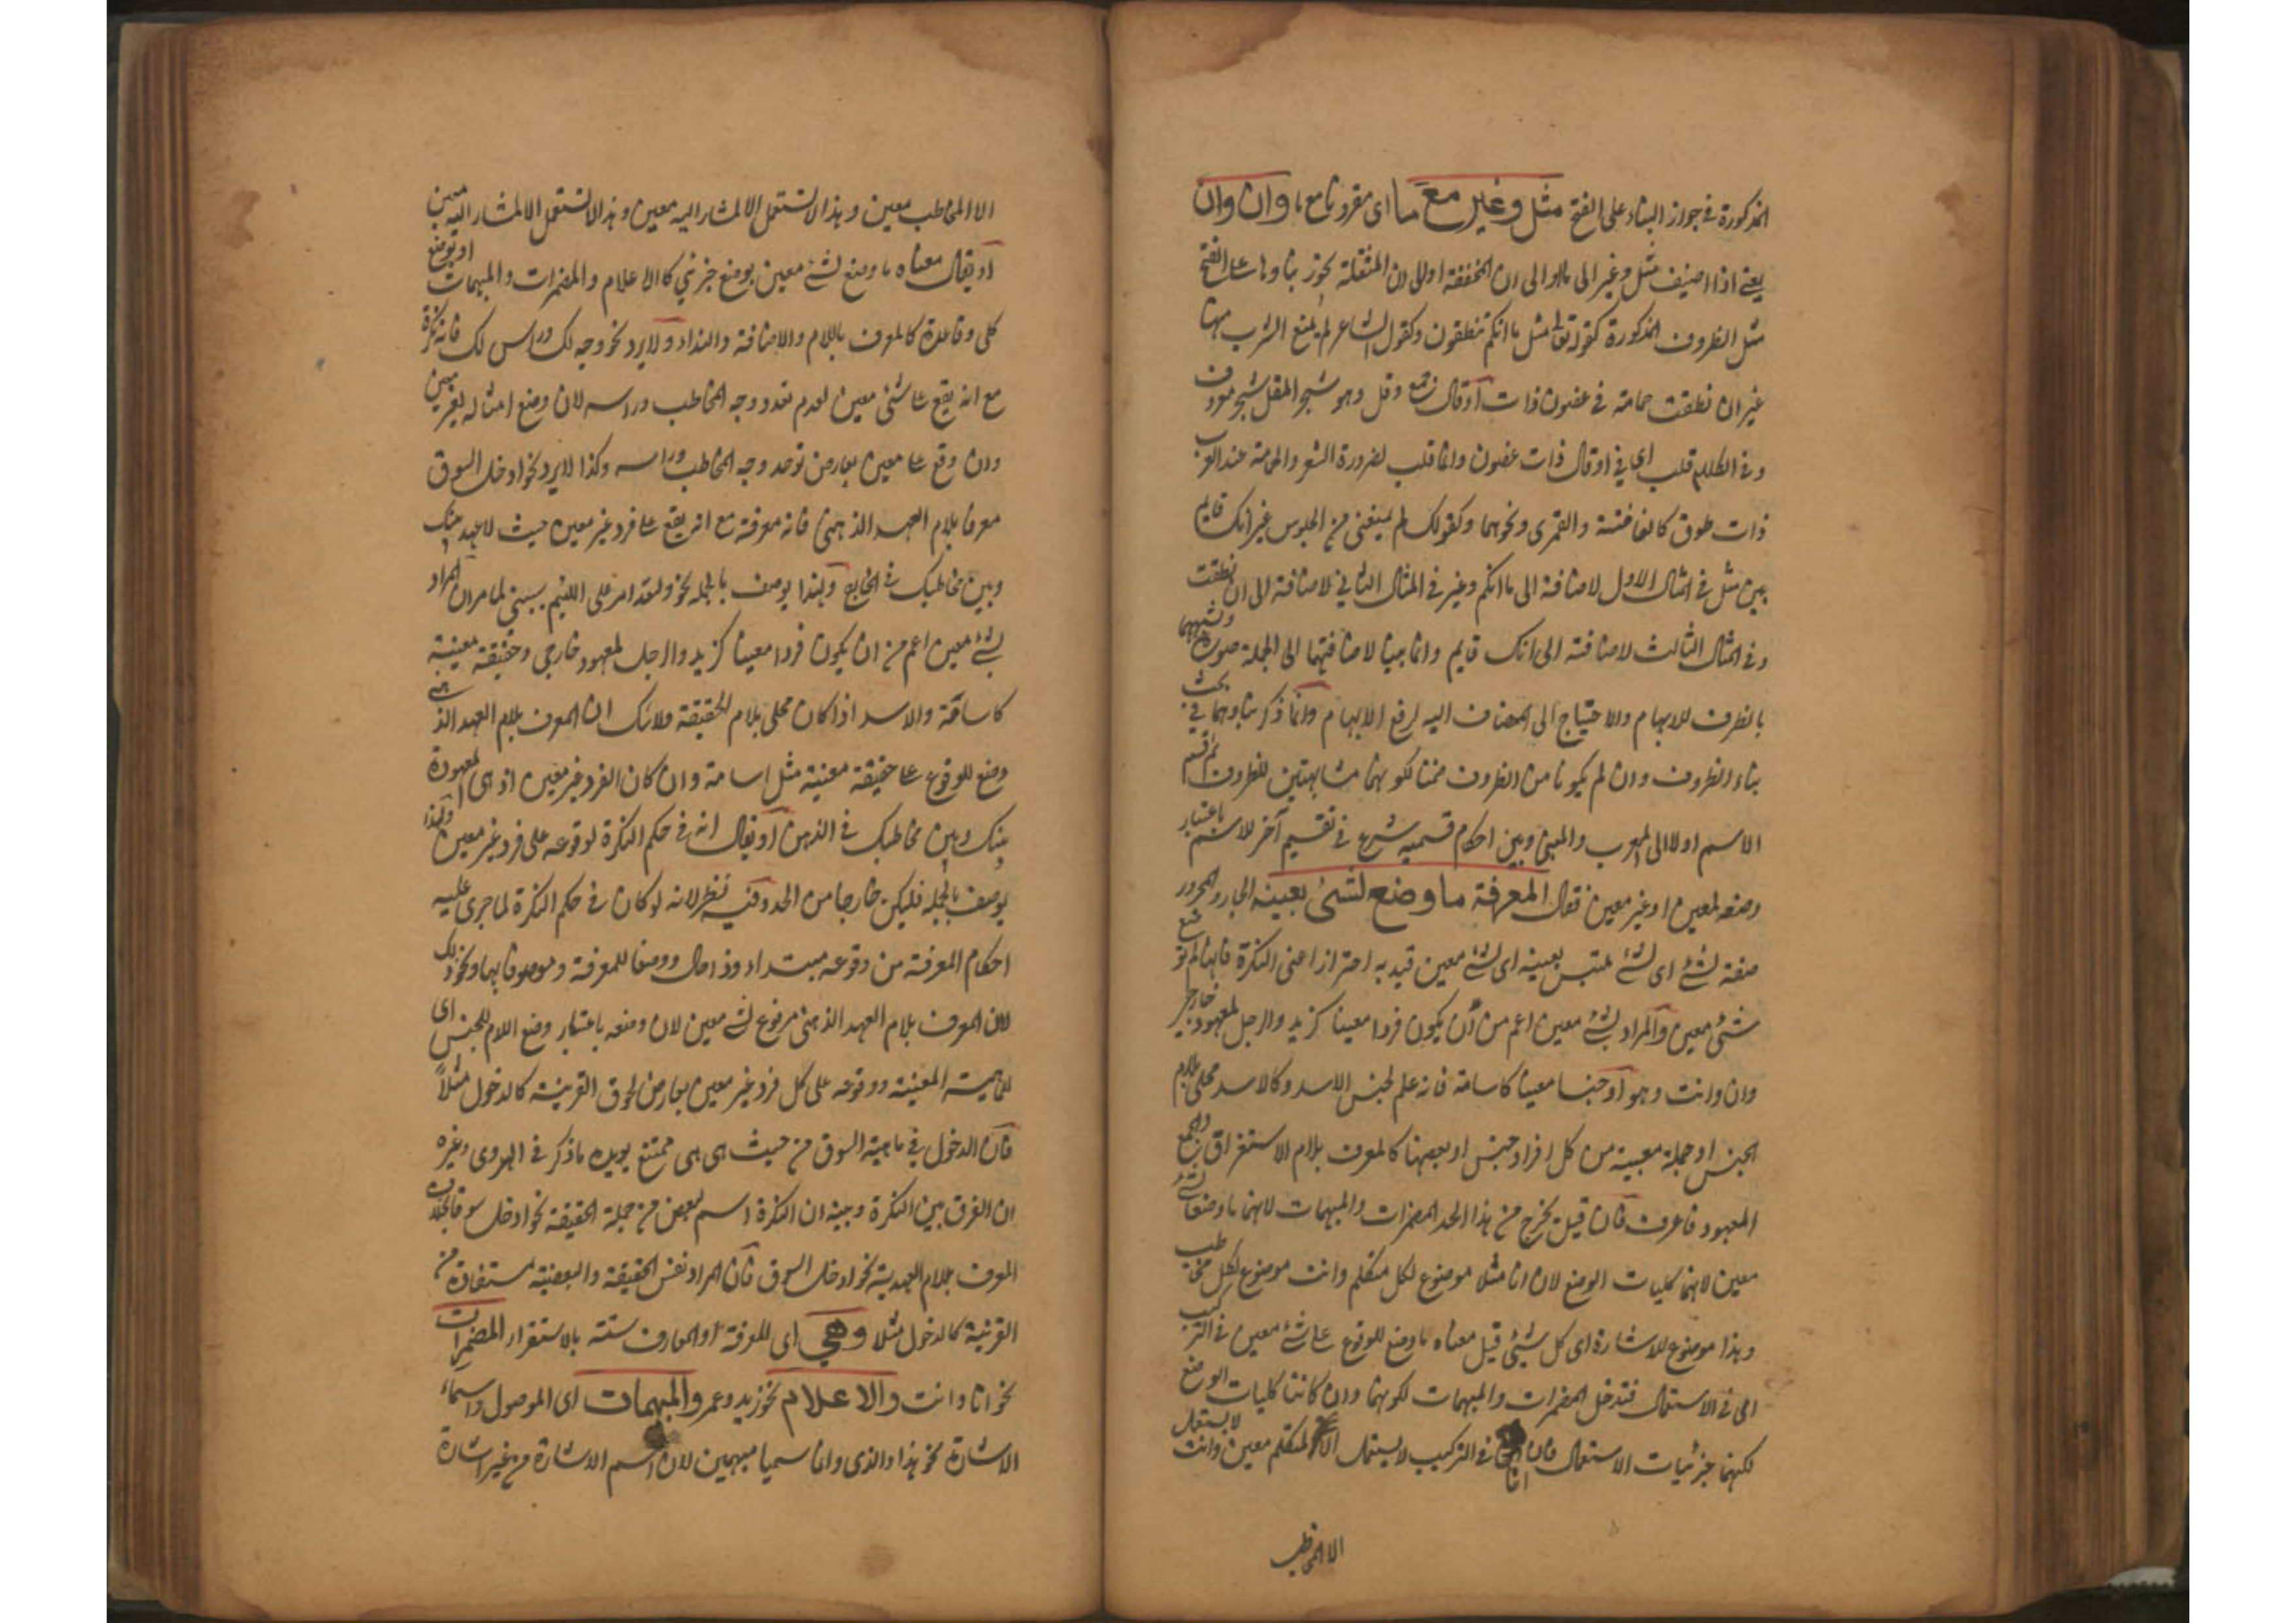 المذكورة في جواز البناء على الفتح مثل وغير مع ما اى مقرونا مع ما وان وان
يعنى اذا اضيف مثل وغير الى ما او الى ان المخففة او الى ان المثقلة يجوز بناؤها على الفتح
مثل الظروف المذكورة كقوله تعالى مثل ما انكم تنطقون وكقول الشاعر لم يمنع الشرب منها
غير ان نطقت حمامة في غصون ذات اوقال جمع وقل وهو شجر المقل شجر معروف
وفى الكلام قلب اى في اوقال ذات غصون وانما قلب لضرورة الشعر والحمامة عند العرب
ذات طوق كالفاختة والقمرى ونحوهما وكقولك لم يمنعنى من الجلوس غير انك قايم
بين مثل في المثال الاول لاضافة الى ما انكم وغير في المثال الثاني لاضافة الى ان نطقت
وفى المثال الثالث لاضافته الى انك قايم وانما بنيا لاضافتهما الى الجملة صورة وشبههما
بالظرف للابهام والاحتياج الى المضاف اليه لرفع الابهام وانما ذكر بناؤهما في بحث
بناء الظروف وان لم يكونا من الظروف لكونهما مشابهتين للظروف ثم قسم
الاسم اولا الى المعرب والمبنى وبين احكام قسميه شرع في تقسيم آخر للاسم باعتبار
وضعه لمعين او غير معين فقال المعرفة ما وضع لشئ بعينه الجار والمجرور
صفة لشئ اى لشئ ملتبس بعينه اى لشئ معين قيد به احترازا عن النكرة فانها لم توضع
شئ معين والمراد بشئ معين اعم من ان يكون فردا معينا كزيد والرجل لمعهود خارجى
وان وانت وهو او جنسا معينا كاسامة فانه علم لجنس الاسد وكالاسد محلى بلام
الجنس او جملة معينة من كل افراد جنس او بعضها كالمعرف بلام الاستغراق والجمع
المعهود فاعرف فان قيل يخرج من هذا الحد المضمرات والمبهمات لانهما ما وضعا لشئ
معين لانهما كليات الوضع لان انا مثلا موضوع لكل متكلم وانت موضوع لكل مخاطب
وهذا موضوع للاشارة اى كل شئ قيل معناه ما وضع للوقوع على شئ معين في التركيب
اى في الاستعمال فتدخل المضمرات والمبهمات لكونهما وان كانتا كليات الوضع
لكنهما جزئيات الاستعمال فان انا في التركيب لا يستعمل الا لمتكلم معين وانت لا يستعمل
الا المخاطب
الا المخاطب معين وهذا لا تستعمل الا لمشار اليه معين وهذا لا تستعمل الا لمشار اليه معين
او يقال معناه ما وضع لشئ معين بوضع جزئي كالاعلام والمضمرات والمبهمات او بوضع
كلى وقاعدة كالمعرف باللام والاضافة والنداء ولا يرد نحو وجه لك وراس لك فانه نكرة
مع انه يقع على شئ معين لعدم تعدد وجه المخاطب وراسه لان وضع امثاله لغير معين
وان وقع على معين بعارض توحد وجه المخاطب وراسه وكذا لا يرد نحو ادخل السوق
معرفا بلام العهد الذهنى فانه معرفة مع انه يقع على فرد غير معين حيث لا عهد بينك
وبين مخاطبك في الخارج ولهذا يوصف بالجملة نحو ولقد امر على اللئيم يسبنى لما مر ان المراد
بشئ معين اعم من ان يكون فردا معينا كزيد والرجل لمعهود خارجى وحقيقة معينة
كاسامة والاسد اذا كان محلى بلام الحقيقة ولا شك ان المعرف بلام العهد الذهنى
وضع للوقوع على حقيقة معينة مثل اسامة وان كان الفرد غير معين اذ هى المعهودة
بينك وبين مخاطبك في الذهن او يقال انه في حكم النكرة لوقوعه على فرد غير معين ولهذا
يوصف بالجملة فليكن خارجا من الحد وفيه نظر لانه لو كان في حكم النكرة لما جرى عليه
احكام المعرفة من وقوعه مبتداء وذا حال ووصفا للمعرفة وموصوفا بها ونحو ذلك
لان المعرف بلام العهد الذهنى موضوع لشئ معين لان وضعه باعتبار وضع اللام للجنس اى
للماهية المعينة ووقوعه على كل فرد غير معين بعارض لحوق القرينة كالدخول مثلا
فان الدخول في ماهية السوق من حيث هى هى ممتنع يويده ما ذكر في الهروى وغيره
ان الفرق بين النكرة وبينه ان النكرة اسم لبعض من جملة الحقيقة نحو ادخل سوقا بخلاف
المعرف بلام العهدية نحو ادخل السوق فان المراد نفس الحقيقة والبعضية مستفادة من
القرينة كالدخول مثلا وهي اى المعرفة او المعارف ستة بالاستقراء المضمرات
نحو انا وانت والاعلام نحو زيد وعمرو والمبهمات اى الموصول واسماء
الاشارة نحو هذا والذى وانما سميا مبهمين لان اسم الاشارة من غير اشارة